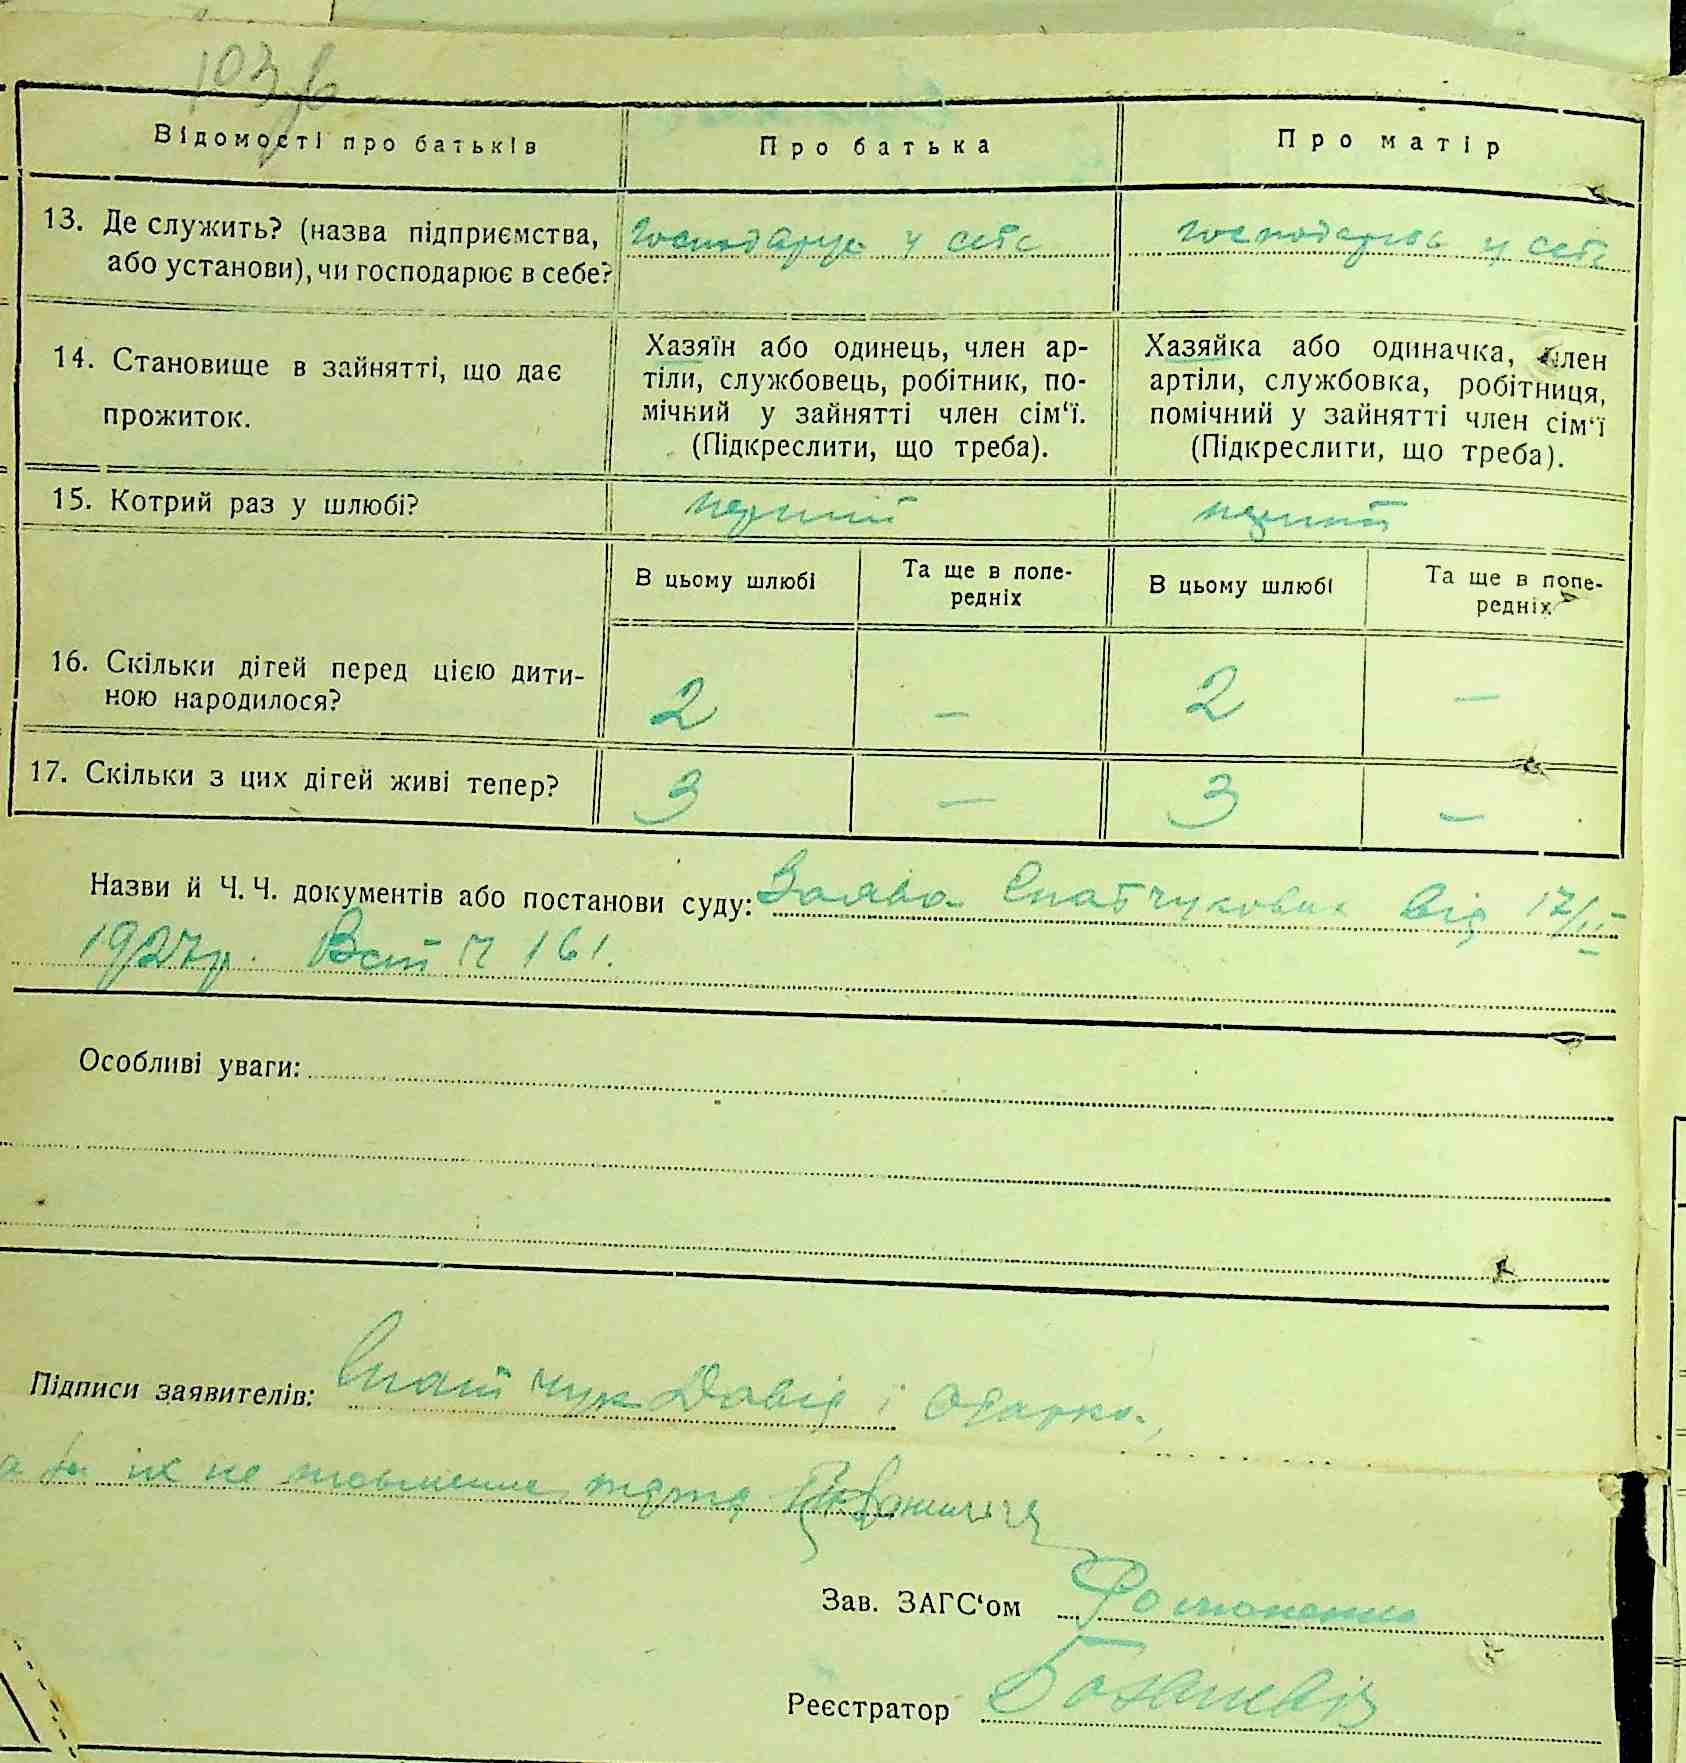 103
Відомості про батьків
Про батька
Про матір
13. Де служить? (назва підприємства,
або установи), чи господарює в себе?
господарює у себе
господарює у себе
14. Становище в зайнятті, що дає
прожиток.
Хазяїн або одинець, член ар-
тіли, службовець, робітник, по-
мічний у зайнятті член сім‘ї.
(Підкреслити, що треба).
Хазяйка або одиначка, член
артіли, службовка, робітниця,
помічний у зайнятті член сім‘ї
(Підкреслити, що треба).
15. Котрий раз у шлюбі?
перший
перший
В цьому шлюбі
Та ще в попе-
редніх
В цьому шлюбі
Та ще в попе-
редніх
16. Скільки дітей перед цією дити-
ною народилося?
2
–
2
–
17. Скільки з цих дітей живі тепер?
3
–
3
–
Назви й Ч. Ч. документів або постанови суду: Заява Снатчукових від 17/II
1927р. Ч 161.
Особливі уваги:
Підписи заявителів: Снатчук Давід і Одарка,
їх не
Зав. ЗАГС‘ом
Реєстратор